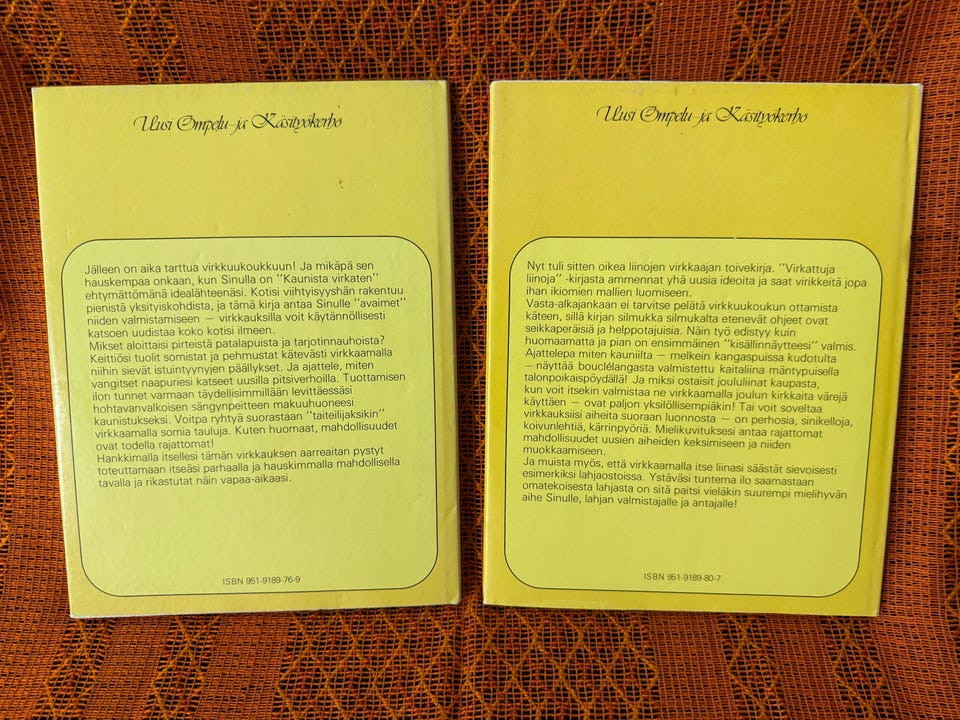 Uusi Ompelu- ja Käsityökerho
Jälleen on aika tarttua virkkuukoukkuun! Ja mikäpä sen
hauskempaa onkaan, kun Sinulla on "Kaunista virkaten"
ehtymättömänä idealähteenäsi. Kotisi viihtyisyyshän rakentuu
pienistä yksityiskohdista, ja tämä kirja antaa Sinulle "avaimet"
niiden valmistamiseen — virkkauksilla voit käytännöllisesti
katsoen uudistaa koko kotisi ilmeen.
Mikset aloittaisi pirteistä patalapuista ja tarjotinnauhoista?
Keittiösi tuolit somistat ja pehmustat kätevästi virkkaamalla
niihin sievät istuintyynyjen päällykset. Ja ajattele, miten
vangitset naapuriesi katseet uusilla pitsiverhoilla. Tuottamisen
ilon tunnet varmaan täydellisimmillään levittäessäsi
hohtavanvalkoisen sängynpeitteen makuuhuoneesi
kaunistukseksi. Voitpa ryhtyä suorastaan "taiteilijaksikin"
virkkaamalla somia tauluja. Kuten huomaat, mahdollisuudet
ovat todella rajattomat!
Hankkimalla itsellesi tämän virkkauksen aarreaitan pystyt
toteuttamaan itseäsi parhaalla ja hauskimmalla mahdollisella
tavalla ja rikastutat näin vapaa-aikaasi.
ISBN 951-9189-76-9
Uusi Ompelu- ja Käsityökerho
Nyt tuli sitten oikea liinojen virkkaajan toivekirja. "Virkattuja
liinoja" -kirjasta ammennat yhä uusia ideoita ja saat virikkeitä jopa
ihan ikiomien mallien luomiseen.
Vasta-alkajankaan ei tarvitse pelätä virkkuukoukun ottamista
käteen, sillä kirjan silmukka silmukalta etenevät ohjeet ovat
seikkaperäisiä ja helppotajuisia. Näin työ edistyy kuin
huomaamatta ja pian on ensimmäinen "kisällinnäytteesi" valmis.
Ajattelepa miten kauniilta — melkein kangaspuissa kudotulta
— näyttää bouclélangasta valmistettu kaitaliina mäntypuisella
talonpoikaispöydällä! Ja miksi ostaisit joululiinat kaupasta,
kun voit itsekin valmistaa ne virkkaamalla joulun kirkkaita värejä
käyttäen — ovat paljon yksilöllisempiäkin! Tai voit soveltaa
virkkauksiisi aiheita suoraan luonnosta — on perhosia, sinikelloja,
koivunlehtiä, kärrinpyöriä. Mielikuvituksesi antaa rajattomat
mahdollisuudet uusien aiheiden keksimiseen ja niiden
muokkaamiseen.
Ja muista myös, että virkkaamalla itse liinasi säästät sievoisesti
esimerkiksi lahjaostoissa. Ystäväsi tuntema ilo saamastaan
omatekoisesta lahjasta on sitä paitsi vieläkin suurempi mielihyvän
aihe Sinulle, lahjan valmistajalle ja antajalle!
ISBN 951-9189-80-7